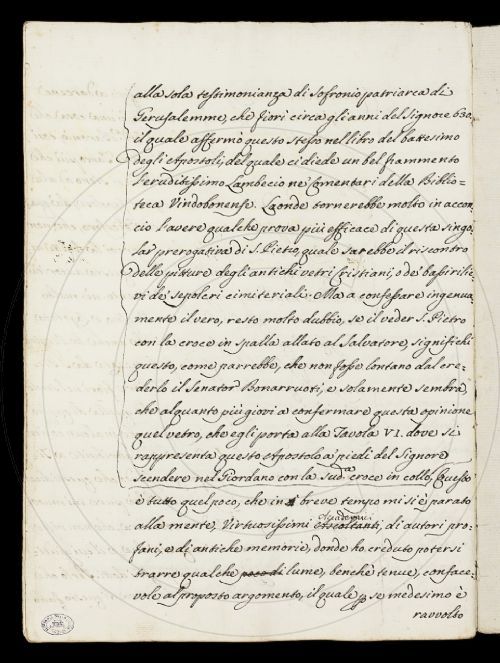 alla sola testimonianza di Sofronio patriarca di
Gerusalemme, che fiorì circa gli anni del Signore 630.
il quale affermò questo stesso nel libro del battesimo
degli Apostoli, del quale ci diede un bel frammento
l'eruditissimo Lambecio ne' Comentari della Biblio=
teca Vindobonense. Laonde tornerebbe molto in accon
cio l'avere qualche prova più efficace di questa singo
lar prerogativa di S. Pietro, quale sarebbe il riscontro
delle pitture degli antichi vetri Cristiani, o de' bassirilie
vi de' sepolcri cimiteriali. Ma a confessare ingenua
mente il vero, resto molto dubbio, se il veder S. Pietro
con la croce in spalla allato al Salvatore, significhi
questo, come parrebbe, che non fosse lontano dal cre=
derlo il Senator Bonarruoti; e solamente sembra,
che alquanto più giovi a confermare questa opinione
quel vetro, che egli porta alla Tavola VI. dove si
rappresenta questo Apostolo a' piedi del Signore
scendere nel Giordano con la sud.ta croce in collo. Questo
è tutto quel poco, che in breve tempo mi si è parato
alla mente, Virtuosissimi Accademici Ascoltanti, di autori pro=
fani, e di antiche memorie, donde ho creduto potersi
trarre qualche poco di lume, benchè tenue, conface=
vole al proposto argomento, il quale per se medesimo è
ravvolto